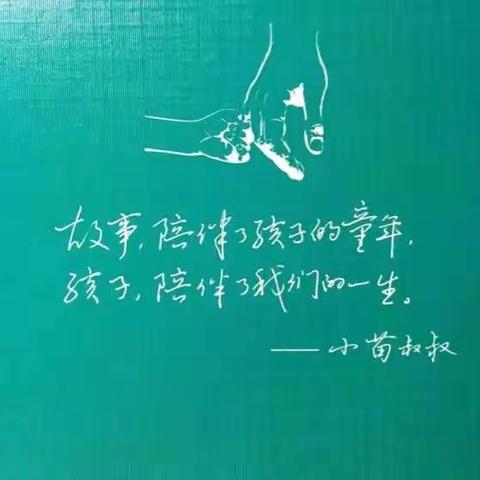 故事，陪伴了孩子的童年，
孩子，陪伴了我们的一生。
——小苗叔叔